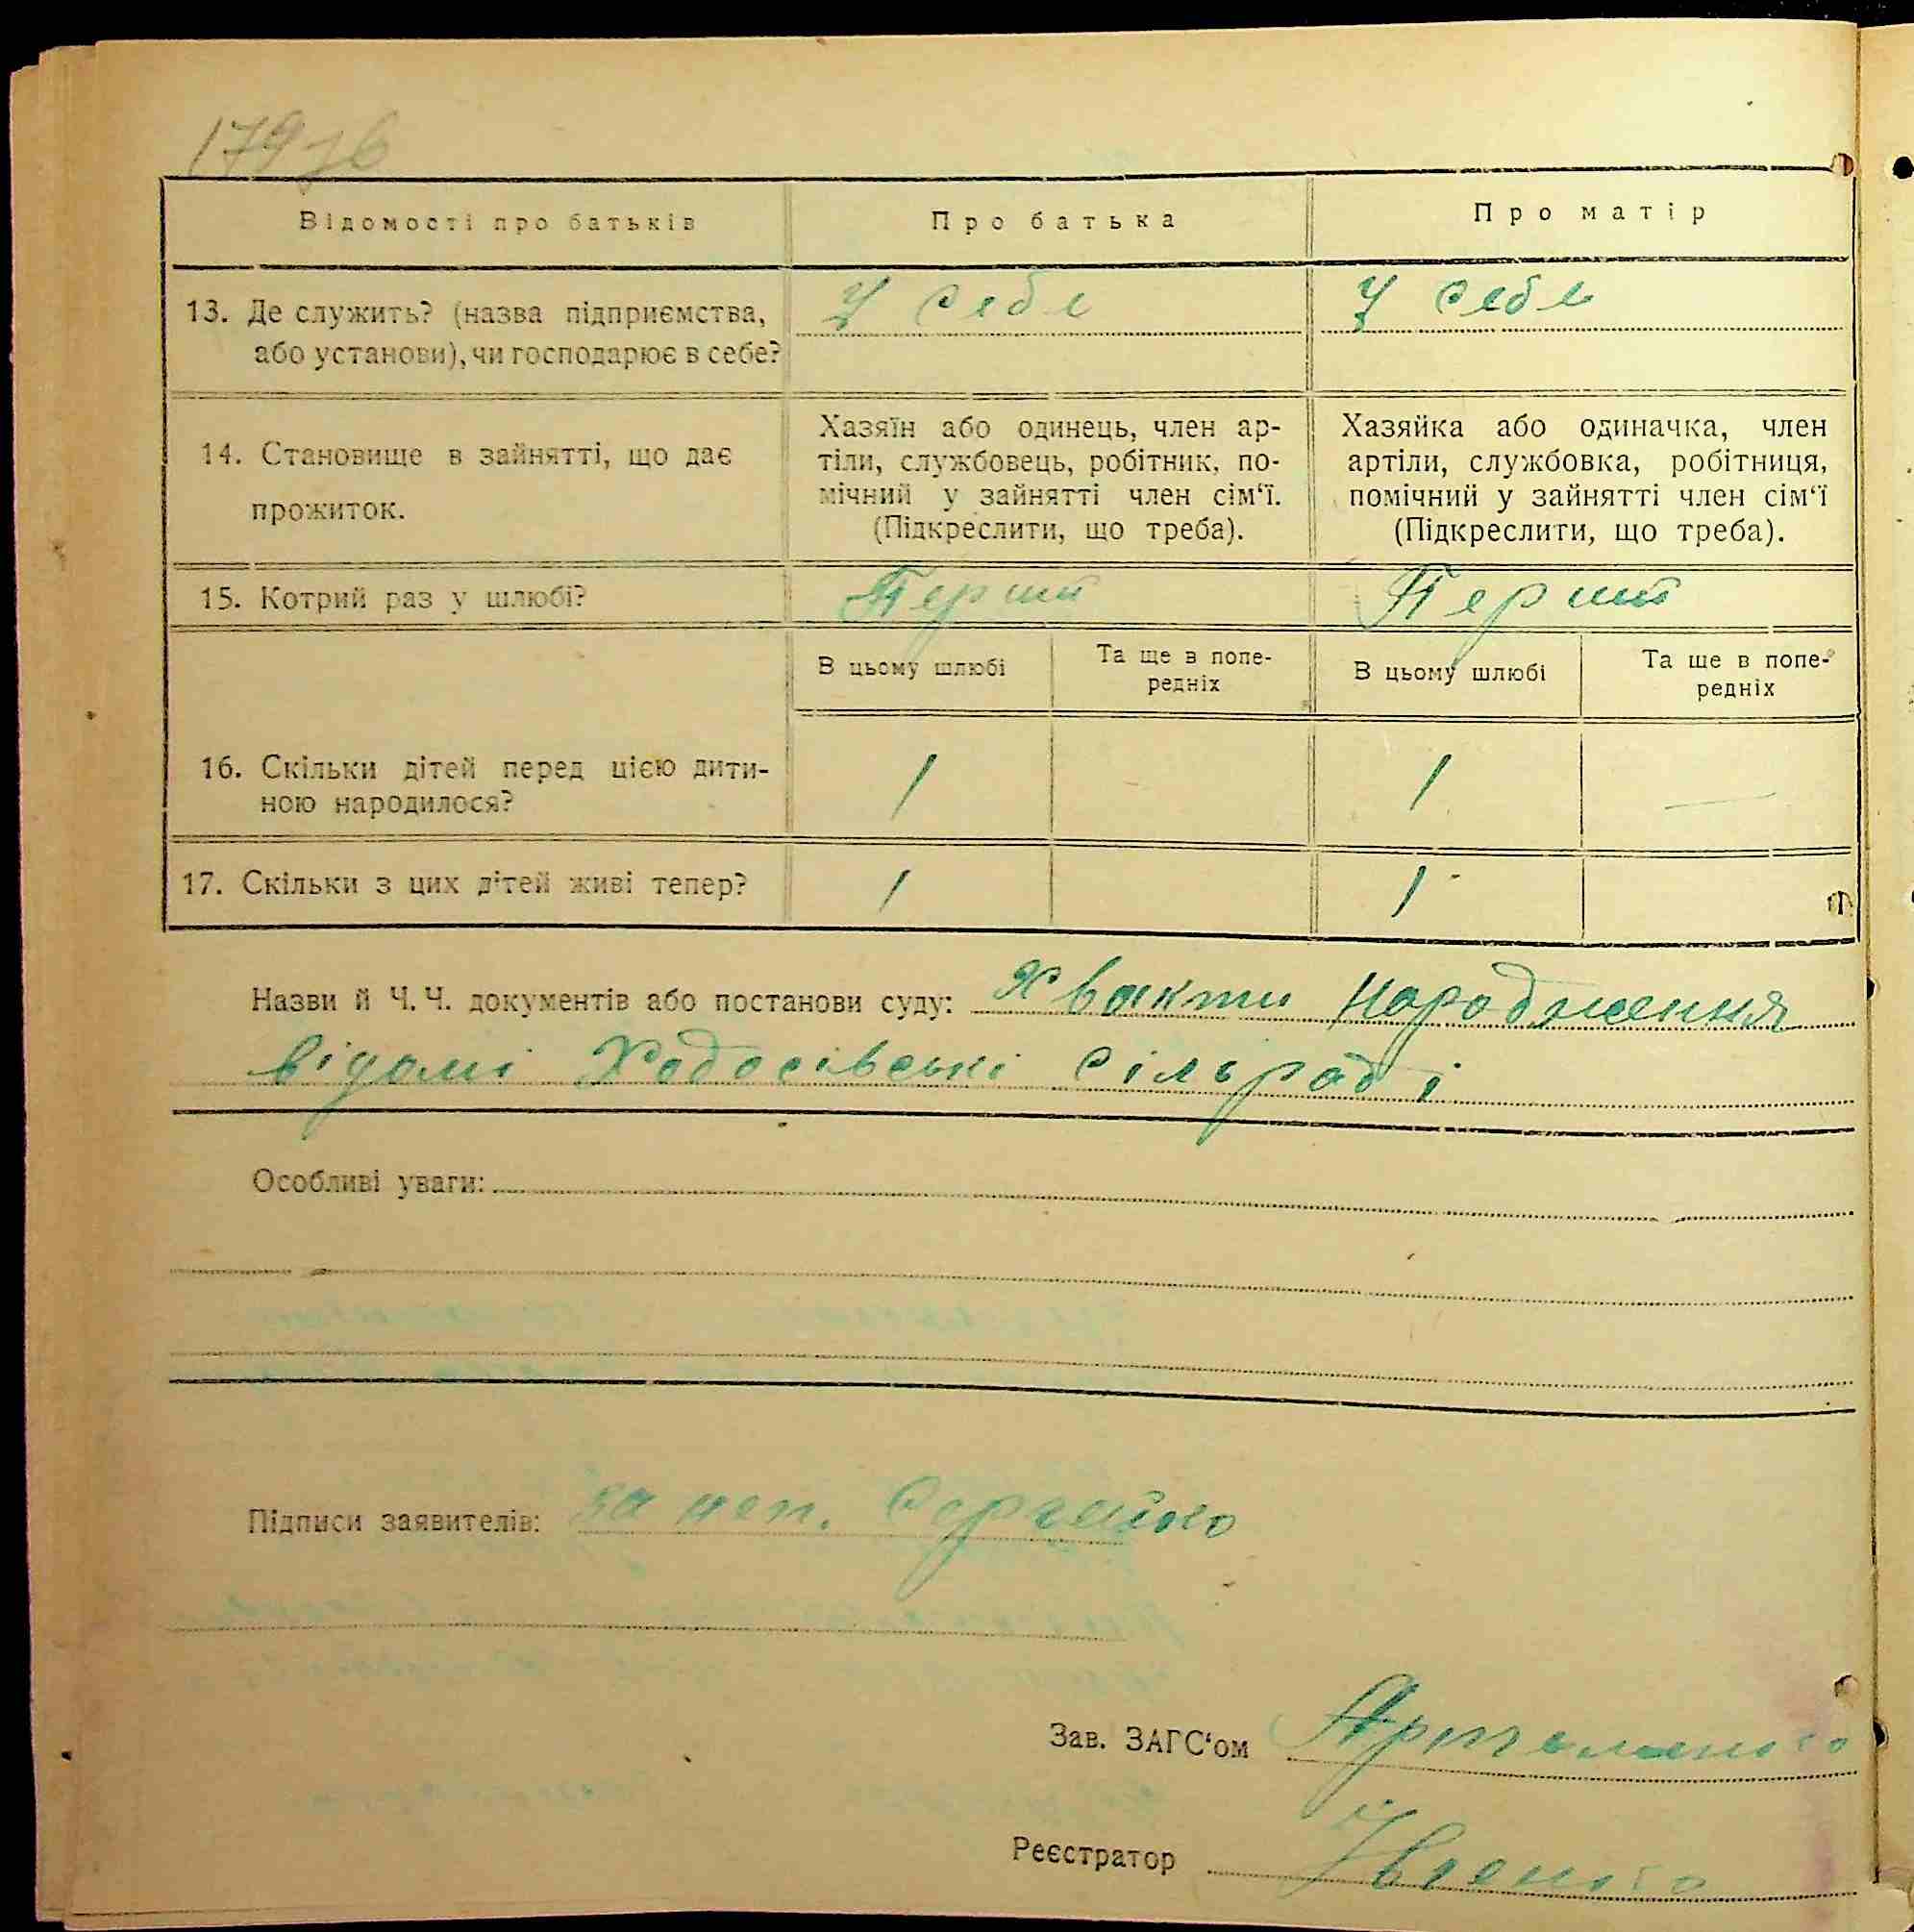 179зб
Відомості про батьків
Про батька
Про матір
13. Де служить? (назва підприємства,
або установи), чи господарює в себе?
У себе
У себе
14. Становище в зайнятті, що дає
прожиток.
Хазяїн або одинець, член ар-
тіли, службовець, робітник, по-
мічний у зайнятті член сім‘ї.
(Підкреслити, що треба).
Хазяйка або одиначка, член
артіли, службовка, робітниця,
помічний у зайнятті член сім‘ї
(Підкреслити, що треба).
15. Котрий раз у шлюбі?
Перший
Перший
В цьому шлюбі
Та ще в попе-
редніх
В цьому шлюбі
Та ще в попе-
редніх
16. Скільки дітей перед цією дити-
ною народилося?
1
1
—
17. Скільки з цих дітей живі тепер?
1
1
Назви й Ч. Ч. документів або постанови суду: Хвакти народження
відомі Ходосівські сільраді
Особливі уваги:
Підписи заявителів: за неп.
Зав. ЗАГС‘ом
Реєстратор